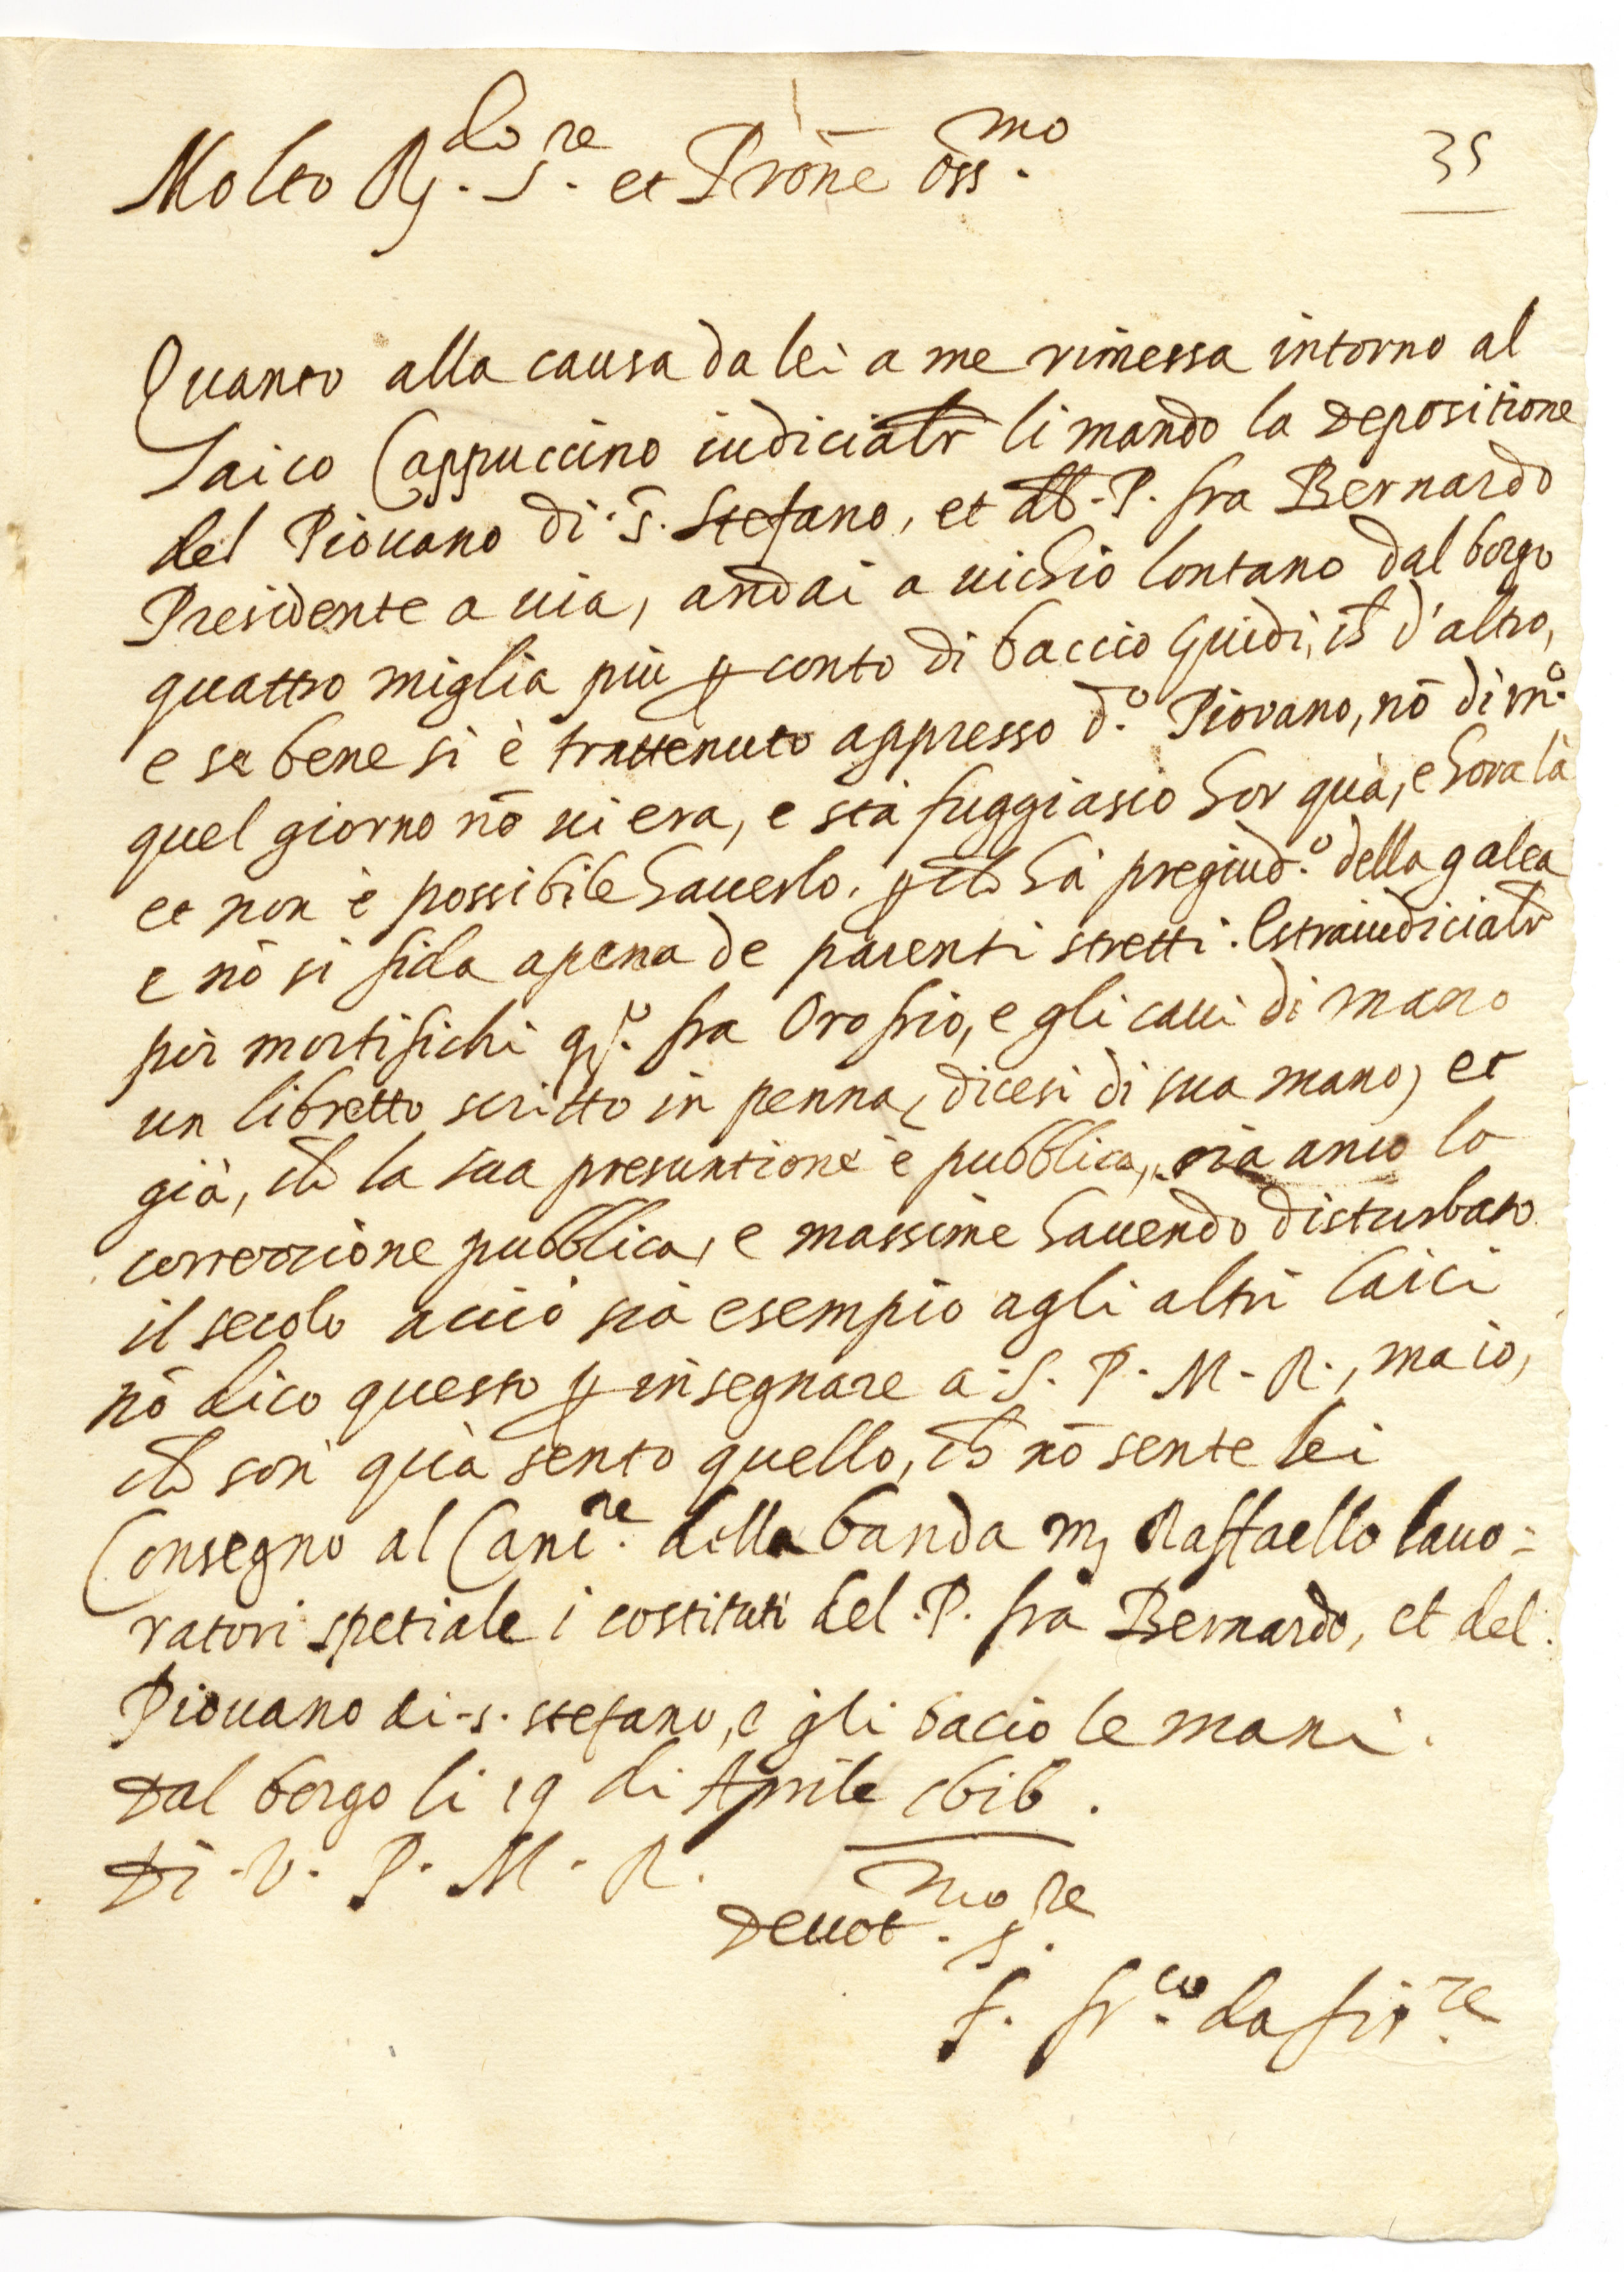 Molto R.do S.re et Prõne oss.mo
35
Quanto alla causa da lei a me rimessa intorno al
laico Cappuccino iudicialr li mando la depositione
del Piouano di S. Stefano, et del P. fra Bernardo
Presidente a uia, andai a uichio lontano dal borgo
quattro miglia più p conto di baccio Guidi, ch d'altro,
e se bene si è trattenuto appresso d.o Piovano, nõ di m.o
quel giorno nõ ui era, e sta fuggiasco hor quà, e hora là
et non è possibile hauerlo. pch hà pregiud.o della galea
e nõ si fida apena de parenti stretti. Estraiudicialr
poi mortifichi q.o fra Onofrio, e gli caui di mano
un libretto scritto in penna, dicesi di sua mano, et
già, ch la sua presuntione è pubblica, sia anco la
correzzione pubblica, e massime hauendo disturbato
il secolo acciò sia esempio agli altri laici
nõ dico questo p insegnare a S. P. M. R., ma io,
ch son quà sento quello, ch nõ sente lei
Consegno al Canc.re della banda m. Raffaello lauo=
ratori spetiale i costituti del P. fra Bernardo, et del
Piouano di s. stefano, e gli bacio le mani.
Dal borgo li 19 di Aprile 1616.
Di V. P. M. R.
Deuot.mo S.re
f. fr.co da fir.ze